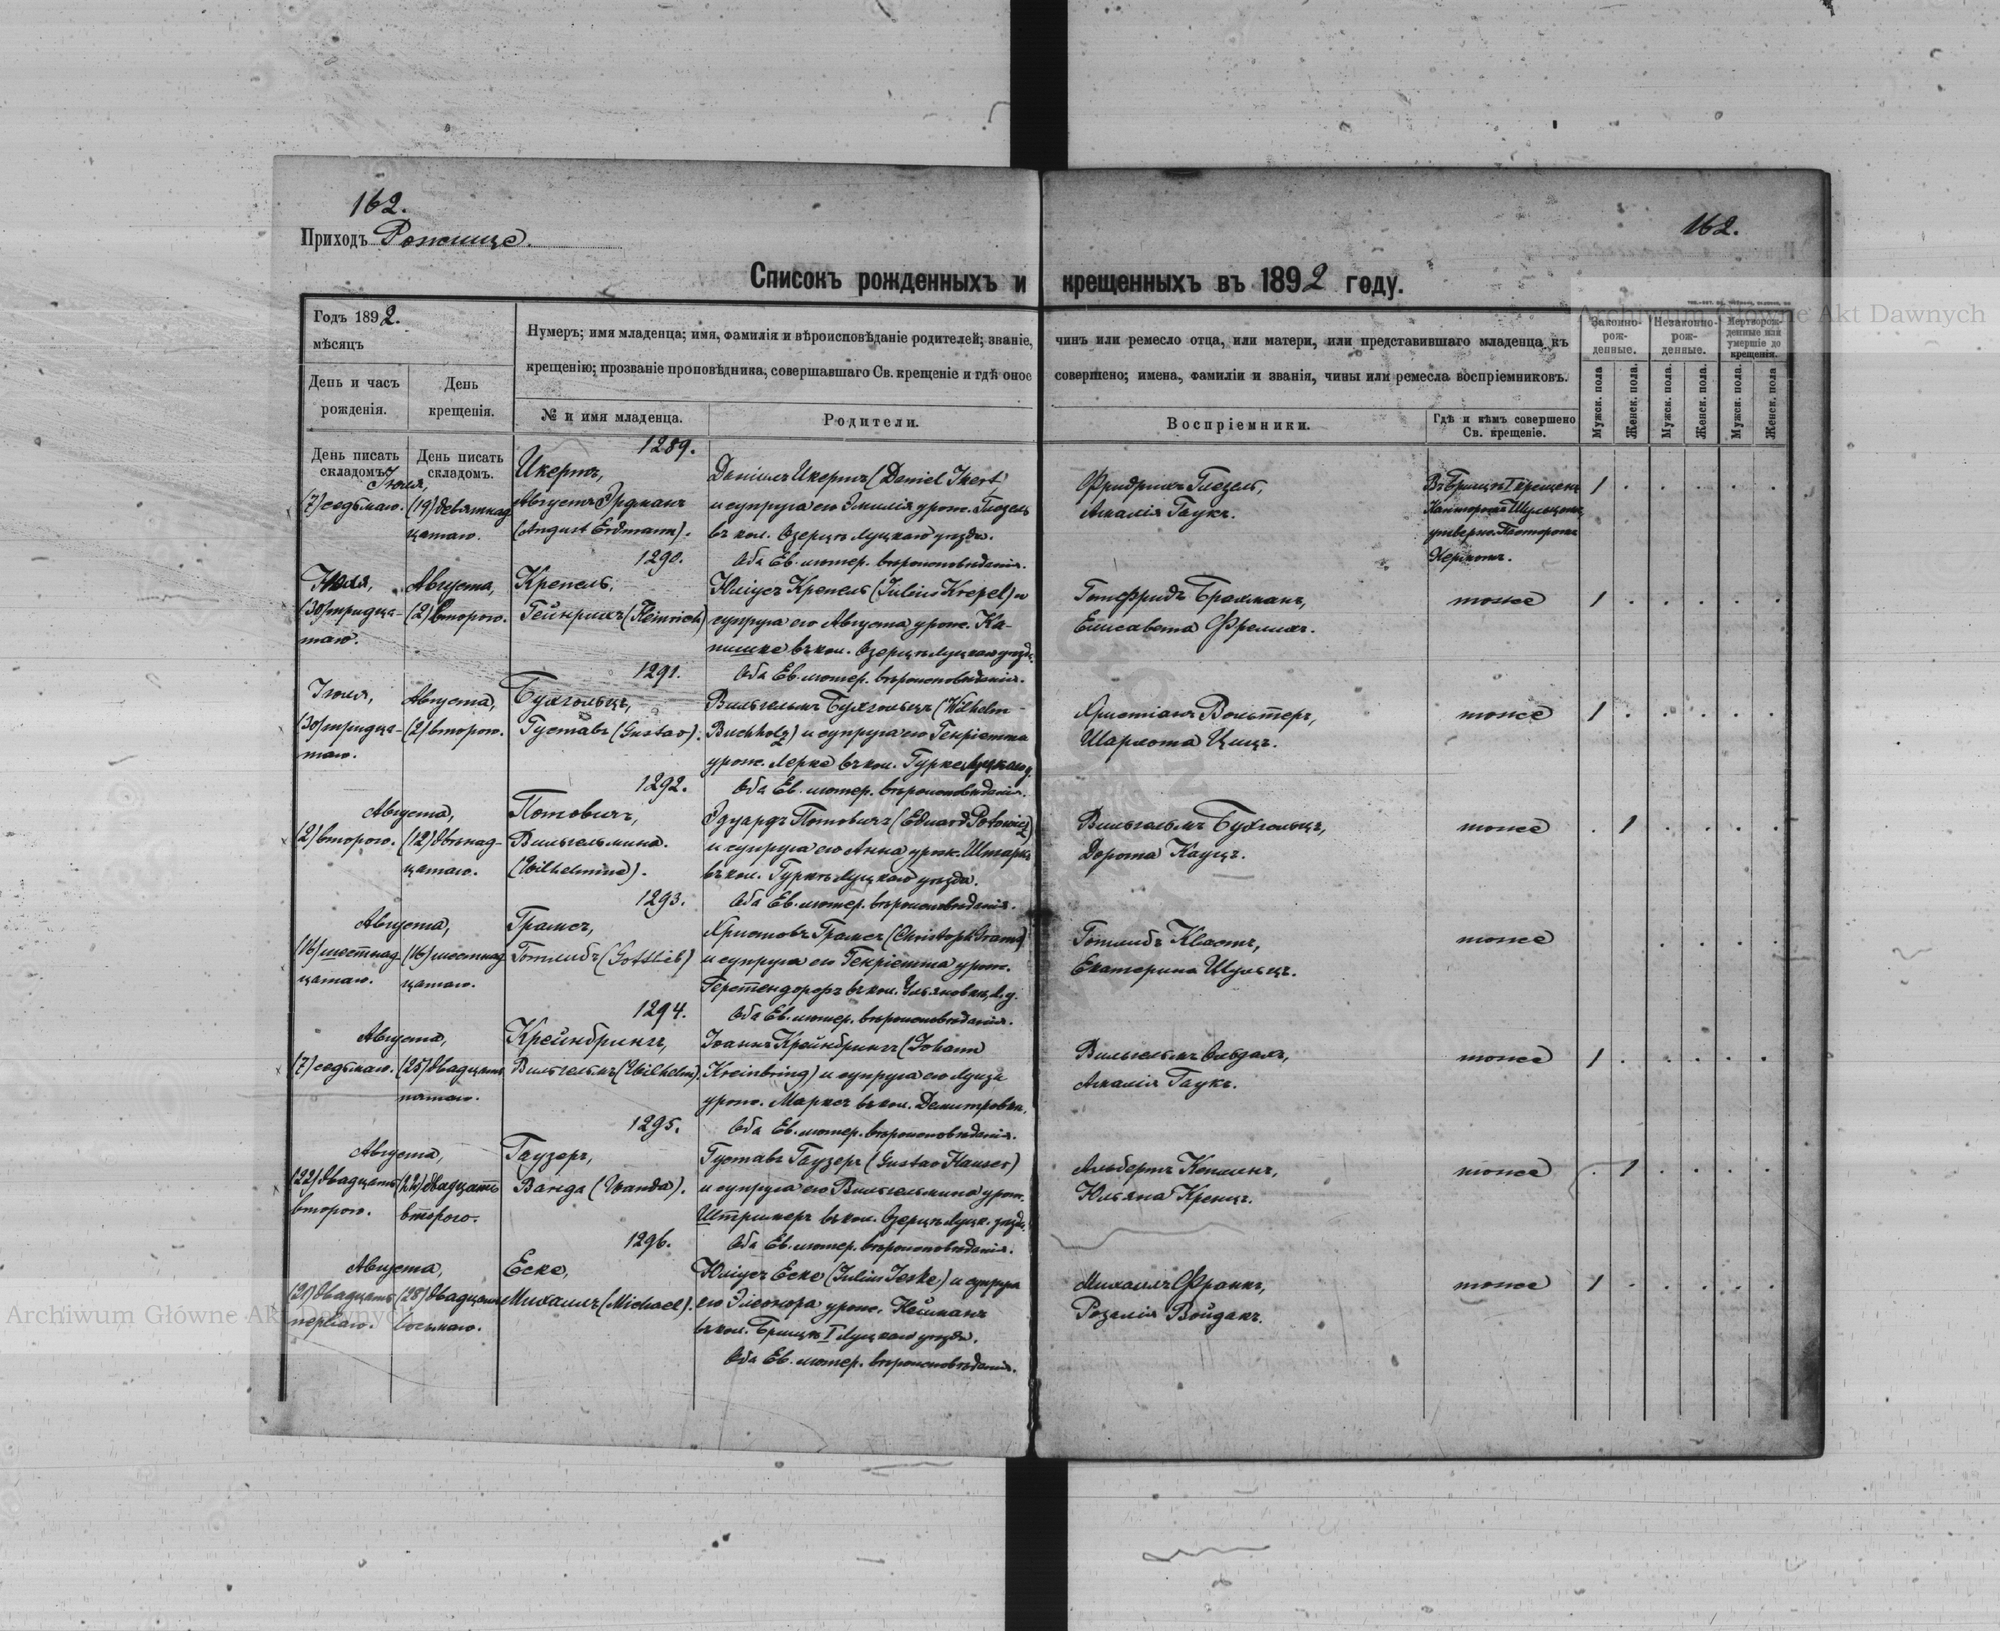 162.
162.
Приходъ Рожище.
Списокъ рожденныхъ и крещенныхъ въ 1892 году.
Archiwum Główne Akt Dawnych
Годъ 1892.
мѣсяцъ
День и часъ
рожденія.
День
крещенія.
Нумеръ; имя младенца; имя, фамилія и вѣроисповѣданіе родителей; званіе, чинъ или ремесло отца, или матери, или представившаго младенца къ
крещенію; прозваніе проповѣдника, совершавшаго Св. крещеніе и гдѣ оное совершено; имена, фамиліи и званія, чины или ремесла воспріемниковъ.
№ и имя младенца.
Родители.
Воспріемники.
Гдѣ и кѣмъ совершено
Св. крещеніе.
Законно-
рож-
денные.
Незаконно-
рож-
денные.
Мертворож-
денные или
умершіе до
крещенія.
Мужск. пола
Женск. пола.
Мужск. пола.
Женск. пола.
Мужск. пола.
Женск. пола
День писать
складомъ.
День писать
складомъ.
1289.
Іюля,
(7) седьмаго.
(19) девятнад
цатаго.
Икертъ,
Августъ Эрдманъ
(August Erdmann).
Даніилъ Икертъ (Daniel Ikert)
и супруга его Эмилія урож. Глезель
въ кол. Озерцѣ Луцкаго уѣзда.
Оба Ев. лютер. вѣроисповѣданія.
Фридрихъ Глезель,
Амалія Гаукъ.
Въ Брищѣ I крещенъ
Канторомъ Шульцемъ
утвержд. Пасторомъ
Керномъ.
1 . . . . .
1290.
Іюля,
(30) тридца-
таго.
Августа,
(2) втораго.
Крепель,
Гейнрихъ (Heinrich)
Юліусъ Крепель (Julius Krepel) и
супруга его Августа урож. Ка-
пишке въ кол. Озерцѣ Луцкаго уѣзда.
Оба Ев. лютер. вѣроисповѣданія.
Готфридъ Брахманъ,
Елисавета Фрелихъ.
тоже
1 . . . . .
1291.
Іюля,
(30) тридца-
таго.
Августа,
(2) втораго.
Бухгольцъ,
Густавъ (Gustav).
Вильгельмъ Бухгольцъ (Wilhelm
Buchholz) и супруга его Генріетта
урож. Лерке въ кол. Гурке Луцкаго у.
Оба Ев. лютер. вѣроисповѣданія.
Христіанъ Вольтеръ,
Шарлота Цицъ.
тоже
1 . . . . .
1292.
Августа,
(2) втораго.
(12) двѣнад-
цатаго.
Потовичъ,
Вильгельмина.
(Wilhelmine).
Эдуардъ Потовичъ (Eduard Potowicz)
и супруга его Анна урож. Штаркъ
въ кол. Гуркѣ Луцкаго уѣзда.
Оба Ев. лютер. вѣроисповѣданія.
Вильгельмъ Бухгольцъ,
Дорота Кауцъ.
тоже
. 1 . . . .
1293.
Августа,
(16) шестнад
цатаго.
(16) шестнад
цатаго.
Грамсъ,
Готлибъ (Gottlieb)
Христофъ Грамсъ (Christoph Grams)
и супруга его Генріетта урож.
Герстендорфъ въ кол. Ульяновкѣ, Л. у.
Оба Ев. лютер. вѣроисповѣданія.
Готлибъ Квастъ,
Екатерина Шульцъ.
тоже
. . . .
1294.
Августа,
(7) седьмаго.
(25) двадцать
пятаго.
Крейнбрингъ,
Вильгельмъ (Wilhelm).
Іоаннъ Крейнбрингъ (Johann
Kreinbring) и супруга его Луиза
урож. Марксъ въ кол. Демитровкѣ.
Оба Ев. лютер. вѣроисповѣданія.
Вильгельмъ Ольдахъ,
Амалія Гаукъ.
тоже
1 . . . . .
1295.
Августа,
(22) двадцать
второго.
(22) двадцать
второго.
Гаузеръ,
Ванда (Wanda).
Густавъ Гаузеръ (Gustav Hauser)
и супруга его Вильгельмина урож.
Штрикеръ въ кол. Озерцѣ Луцк. уѣзда.
Оба Ев. лютер. вѣроисповѣданія.
Альбертъ Кеплинъ,
Юльяна Кренцъ.
тоже
. 1 . . . .
1296.
Августа,
(21) двадцать
перваго.
(28) двадцать
восьмаго.
Еске,
Михаилъ (Michael).
Юліусъ Еске (Julius Jeske) и супруга
его Элеонора урож. Нейманъ
въ кол. Брищѣ I Луцкаго уѣзда.
Оба Ев. лютер. вѣроисповѣданія.
Михаилъ Франкъ,
Розалія Войдакъ.
тоже
1 . . . . .
Archiwum Główne Akt Dawnych